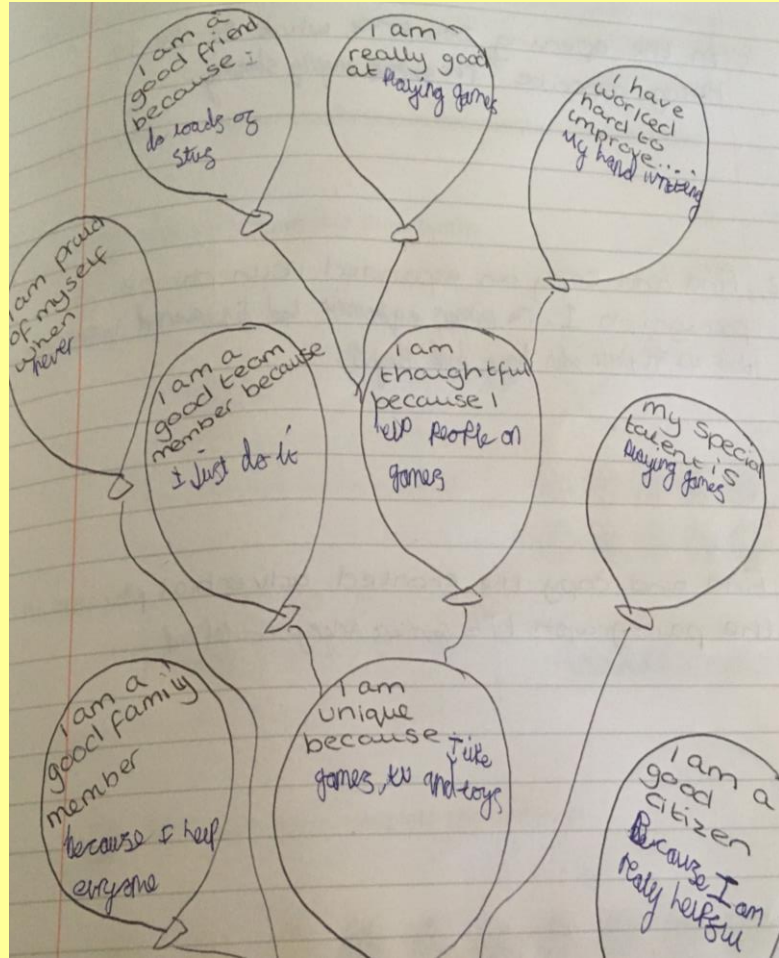 I am a
good friend
because I
do loads of
stuf
I am
really good
at Playing games
i have
worked
hard to
improve....
My hand writing
I am proud
of myself
when
never
I am a
good team
member because
I just do it
I am
thoughtful
because I
help people on
games
my special
talent is
Playing games
I am a
good family
member
because I help
evryone
I am
unique
because I like
games, tv and toys
I am a
good
citizen
Because I am
realy helpful